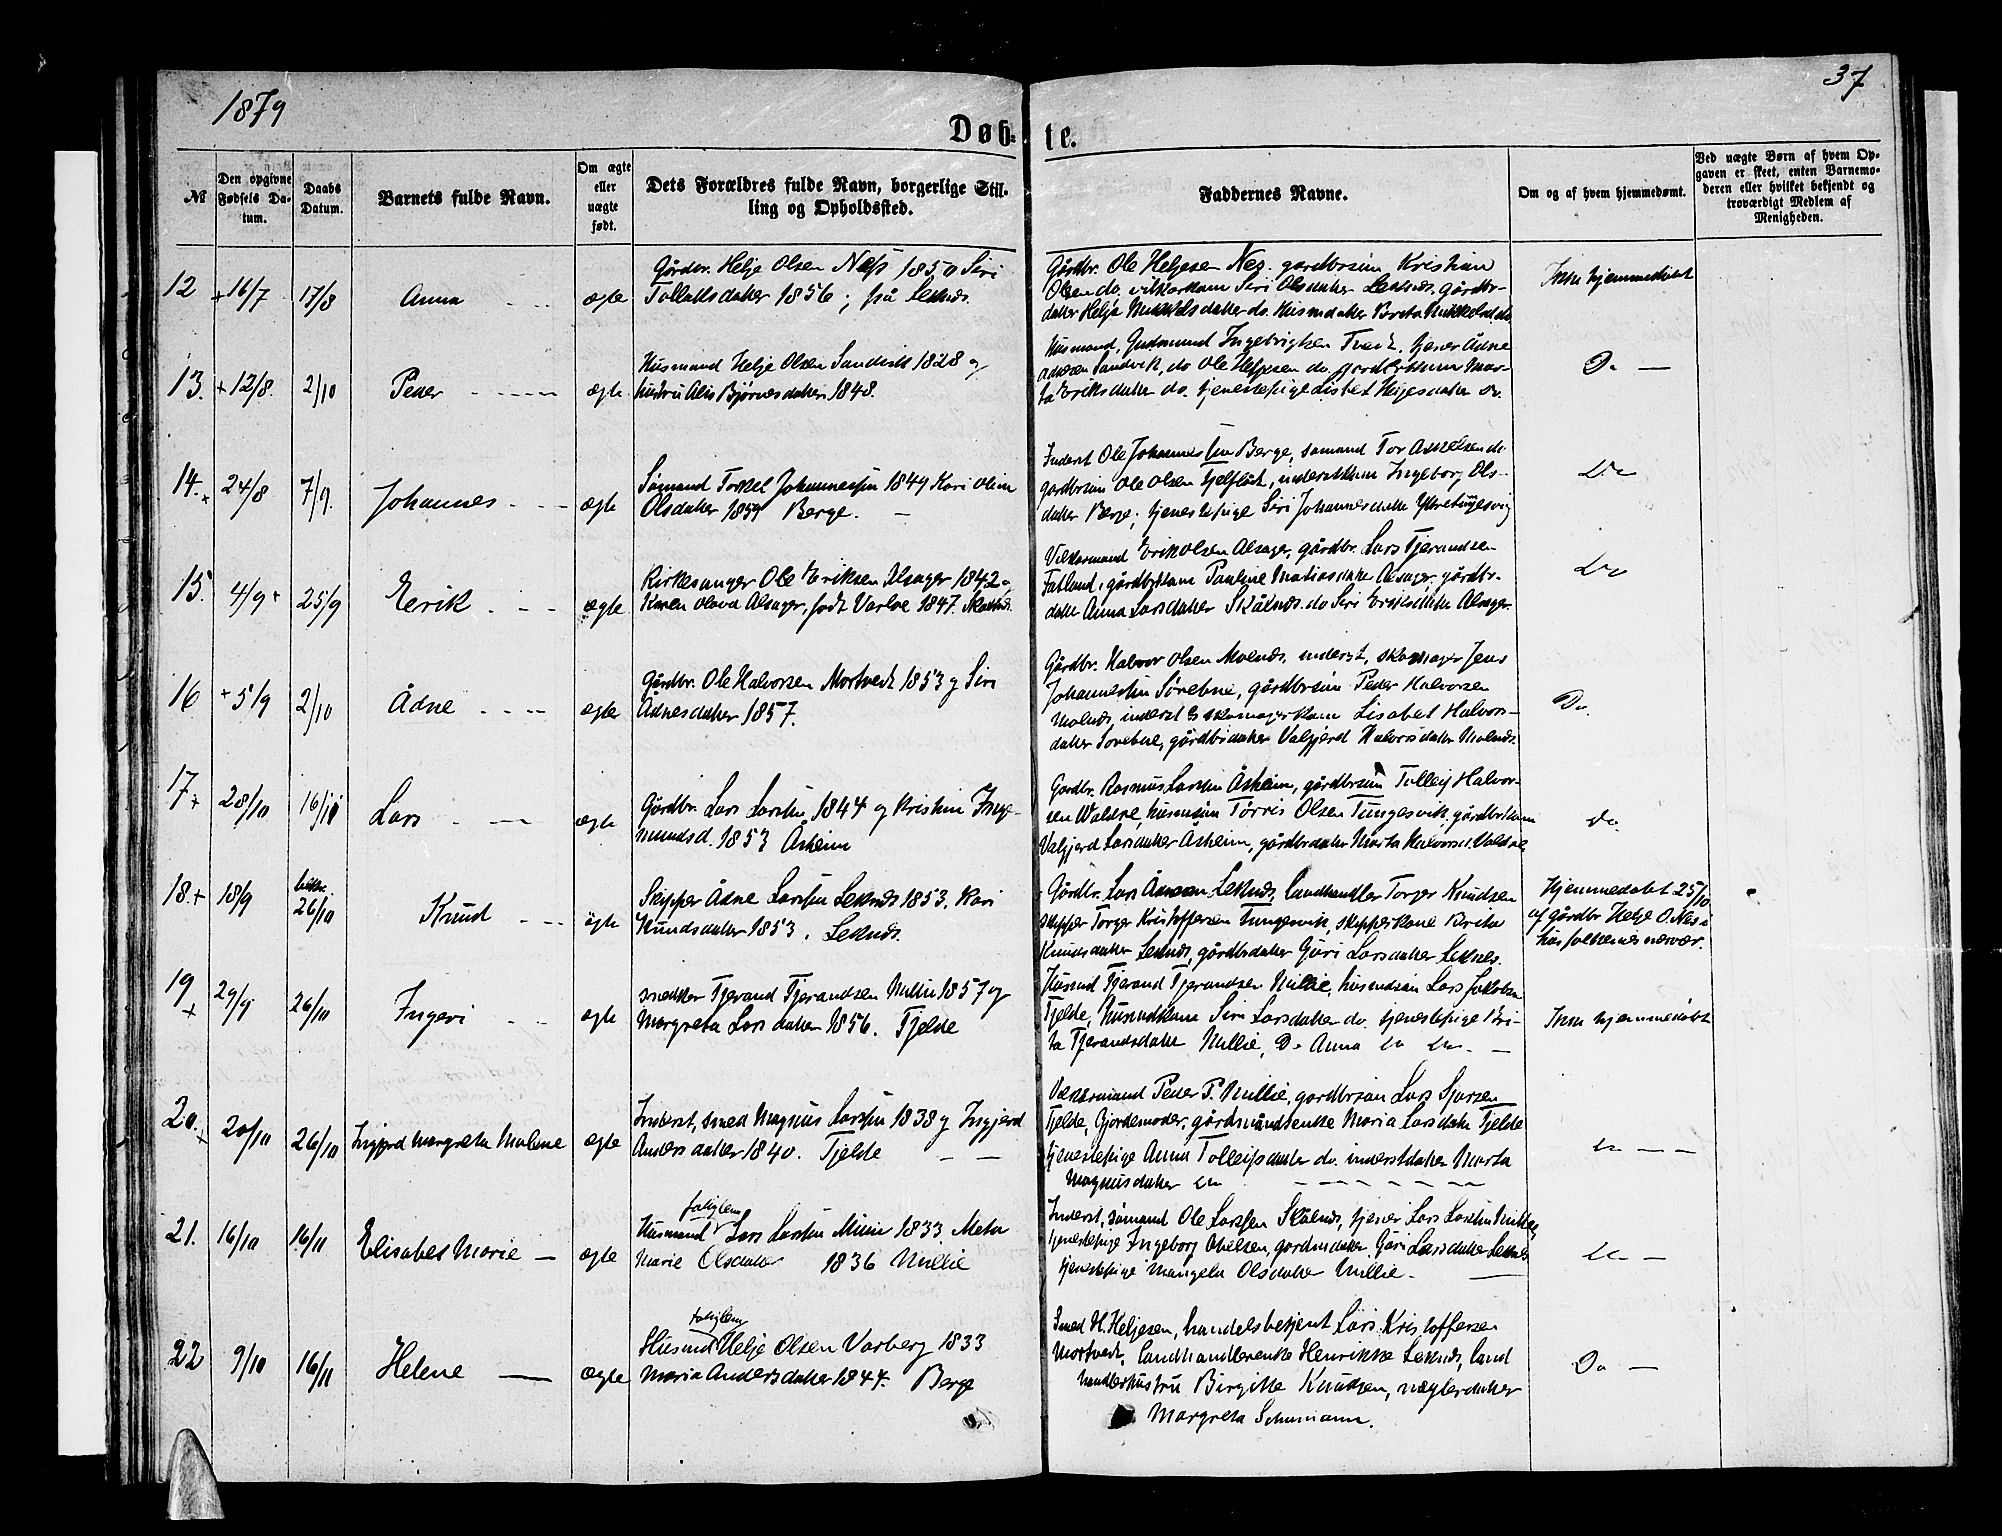 1879
37
Døb-
te.
№
Den opgivne Fødsels Datum.
Daabs Datum.
Barnets fulde Navn.
Om ægte eller uægte født.
Dets Forældres fulde Navn, borgerlige Stilling og Opholdssted.
Faddernes Navne.
Om og af hvem hjemmedømt.
Ved uægte Børn af hvem Opgaven er skeet, enten Barnemoderen eller hvilket bekjendt og troværdigt Medlem af Menigheden.
12 + 16/7 17/8 Anna ægte
Gårdbr. Helje Olsen Næss 1850 Siri
datter 1856; frå Leknes.
Gårdbr. Ole Heljesen Nes. gardbrsøn Kristian
Olsen do, Siri Olsdatter Leknes. gårdbr-
datter Helja do. Husmdatter Brita
Ikke hjemmedøbt
13. + 12/8. 2/10 Peder ægte
Husmand Helje Olsen Sandvik 1828 og
hustru Alis Bjørnesdatter 1848.
Husmand, Gudmund Ingebrigtsen Tveit. tjener Ådne
Sandvik, do Ole Heljesen do, Mar-
ta Eriksdatter do. tjenestepige Lisbet Heljesdatter do.
Do —
14. + 24/8 7/9. Johannes ægte
Sømand Torkel Johannessen 1849 Kari
Olsdatter 1859 Berge. —
Inderst Ole Johannessen Berge, sømand Tor do
gardbrsøn Ole Olsen, inderstkone Ingeborg Ols-
datter Berge; tjenestepige Siri Johannesdatter
Do
15. 4/9 + 25/9 Eerik ægte
Kirkesanger Ole Eriksen Alsager 1842 og
Karen Olava Alsager, født Varloe 1847.
Erik Olsen Alsager, gårdbr. Lars Tjerandsen
Fatland, gårdbrkone Pauline Alsager, gårdbr.
datter Anna Larsdatter Skålnes. do Siri Eriksdatter Alsager.
Do
16. + 5/9 2/10 Ådne ægte
Gårdbr. Ole Halvorsen Mortvedt 1853 og Siri
Ådnesdatter 1857.
Gårdbr. Halvor Olsen Molnes. inderst, skomager Jens
Johannessen Sørebøe, gårdbrsøn Peder Halvorsen
Molnes, inderst & skomagerkone Lisabet Halvors-
datter Sørebøe, gårdbrdatter Valgjerd Halvorsdatter Molnes.
Do.
17. + 28/10 16/11 Lars ægte
Gårdbr. Lars Larssen 1844 og Kristine Inge-
mundsd. 1853 Åsheim
Gardbr. Rasmus Larssen Åsheim, gårdbrsøn Tolleif Halvor-
sen, husmdsøn Tørris Olsen Tungesvik, gårdbrkone
Valgjerd Larsdatter Åsheim, gårdbrdatter Marta Halvorsd.
Do.
18. + 18/9 26/10 Knud ægte
Skipper Ådne Larssen Leknes 1853. Kari
Knudsdatter 1853. Leknes.
Gårdbr. Lars Leknes, Landhandler Torger Knudsen
skipper Torger Kristoffersen Tungesvik, skipperkone Brita
Knudsdatter Leknes, gårdbrdatter Gjøri Larsdatter Leknes.
Hjemmedøbt 25/10
af gårdbr Helje O. Nes i
husfolkenes nærvær.
19 + 29/9 26/10 Ingeri ægte
snedker Tjerand Tjerandsen Millie 1857 og
Margreta Larsdatter 1856. Tjelde
Husmd Tjerand Tjerandsen Millie, husmdsøn Lars Jakobsen
Tjelde, husmdkone Siri Larsdatter do. tjenestepige Bri-
ta Tjerandsdatter Millie, Do Anna do do. —
Ikke hjemmedøbt
20. + 20/10 26/10 Ingjerd Margreta Malene ægte
Inderst, smed Magnus Larssen 1838 og Ingjerd
Andersdatter 1840. Tjelde — —
Peder P. Millie, gardbrsøn Lars Sjursen
Tjelde, Gjordemoder, gårdmandsenke Maria Larsdatter Tjelde
tjenestepige Anna Tolleifsdatter do. inderstdatter Marta
Magnusdatter do — — — — — —
do — — —
21. 16/10 16/11 Elisabet Marie — ægte
fatiglem
Husmand Lars Larssen Millie 1833 Meta
Marie Olsdatter 1836 Millie
Inderst, sømand Ole Larssen Skålnes, tjener Lars Larssen
tjenestepige Ingeborg, gardmdatter Gjøri Larsdatter Leknes
tjenestepige Mangela Olsdatter Millie. —
do —
22 9/10 16/11 Helene — Ægte
fatiglem
Husmd Helje Olsen Varberg 1833
Maria Andersdatter 1844. Berge
Smed H. Heljesen, handelsbetjent Lars Kristoffersen
Mortvedt, Landhandlerenke Henrikke Leknes, Land
handlerhustru Birgitte Knudsen, datter
Margreta Schumann.
Do —